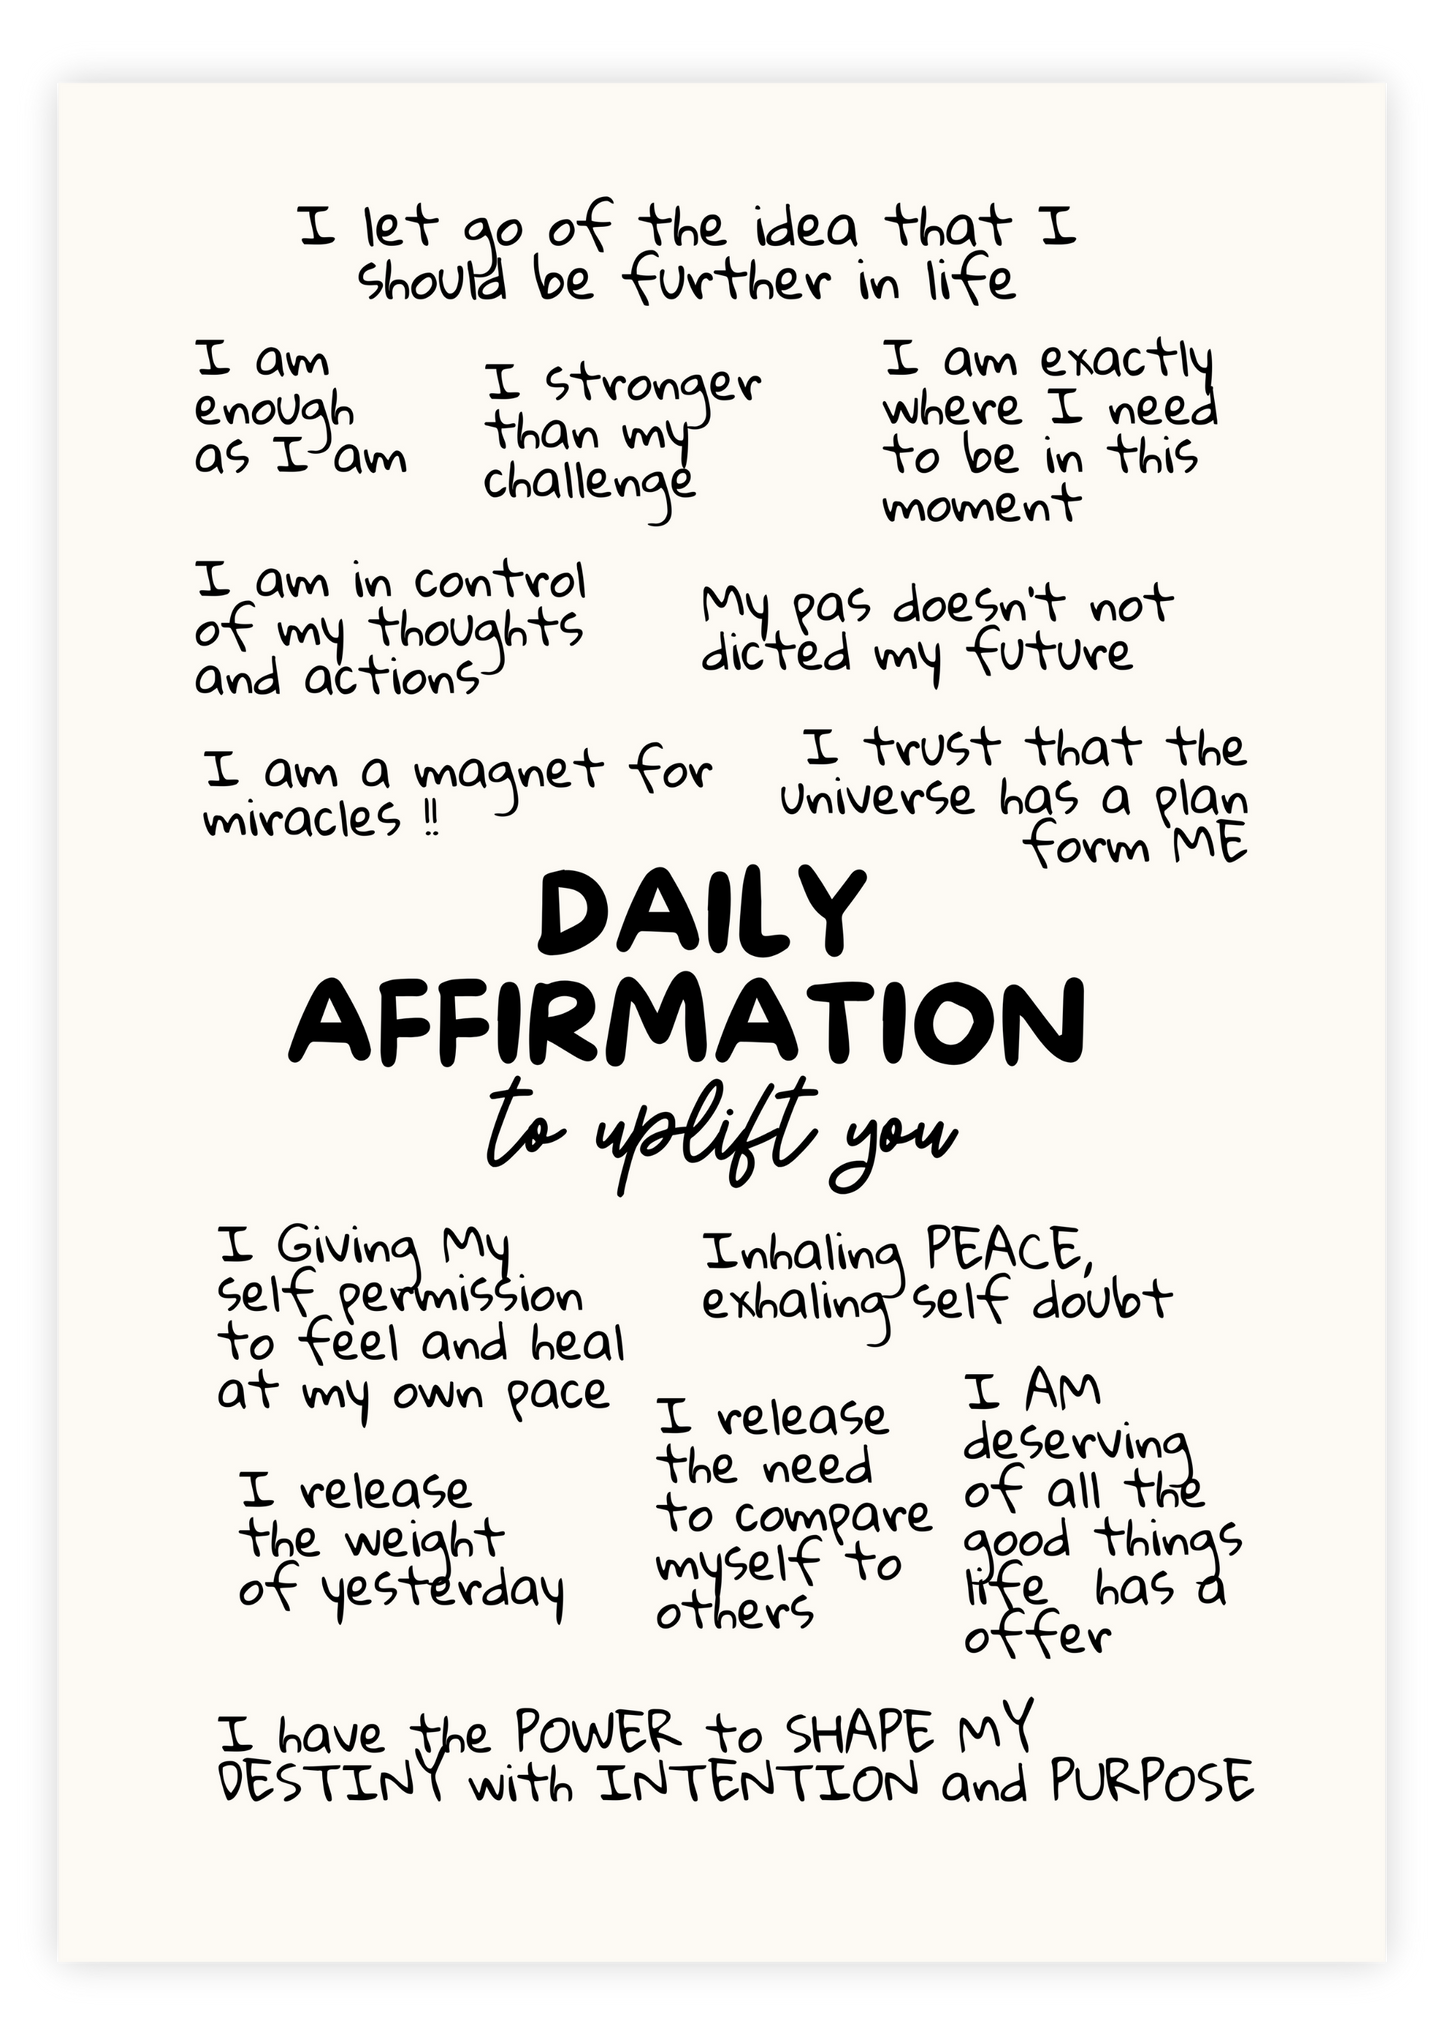 I let go of the idea that I
should be further in life
I am
enough
as I am
I stronger
than my
challenge
I am exactly
where I need
to be in this
moment
I am in control
of my thoughts
and actions
My pas doesn't not
dicted my future
I am a magnet for
miracles !!
I trust that the
universe has a plan
form ME
DAILY
AFFIRMATION
to uplift you
I Giving My
self permission
to feel and heal
at my own pace
Inhaling PEACE,
exhaling self doubt
I release
the weight
of yesterday
I release
the need
to compare
myself to
others
I AM
deserving
of all the
good things
life has a
offer
I have the POWER to SHAPE MY
DESTINY with INTENTION and PURPOSE